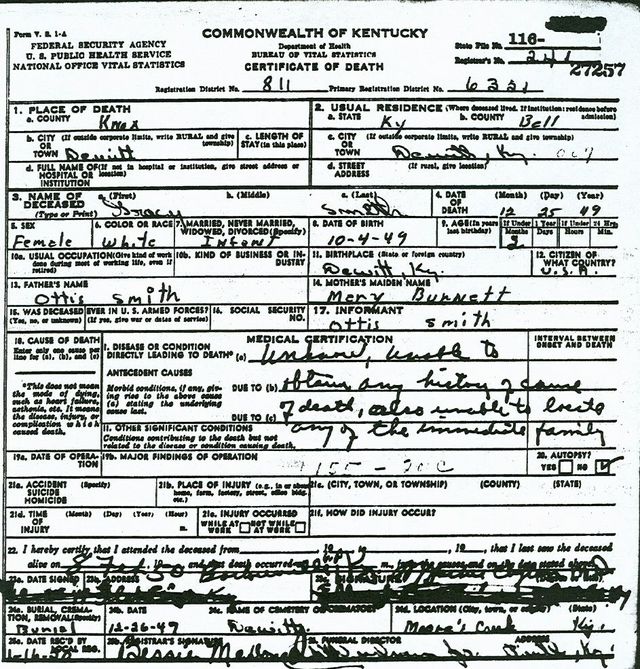 Form V. S. 1-A
FEDERAL SECURITY AGENCY
U. S. PUBLIC HEALTH SERVICE
NATIONAL OFFICE VITAL STATISTICS
COMMONWEALTH OF KENTUCKY
Department of Health
BUREAU OF VITAL STATISTICS
CERTIFICATE OF DEATH
State File No. 116-
Registrar's No. 241
27257
Registration District No. 811 Primary Registration District No.
1. PLACE OF DEATH
a. COUNTY Knox
b. CITY (If outside corporate limits, write RURAL and give township)
OR TOWN Dewitt
c. LENGTH OF STAY (in this place)
d. FULL NAME OF (If not in hospital or institution, give street address or location)
HOSPITAL OR INSTITUTION
2. USUAL RESIDENCE (Where deceased lived. If institution: residence before admission)
a. STATE Ky b. COUNTY Bell
c. CITY (If outside corporate limits, write RURAL and give township)
OR TOWN Dewitt, Ky.
d. STREET ADDRESS (If rural, give location)
3. NAME OF DECEASED (Type or Print)
a. (First) b. (Middle) c. (Last)
Smith
4. DATE OF DEATH (Month) (Day) (Year)
12 25 49
5. SEX
Female
6. COLOR OR RACE
White
7. MARRIED, NEVER MARRIED, WIDOWED, DIVORCED (Specify)
Infant
8. DATE OF BIRTH
10-4-49
9. AGE (In years last birthday) If Under 1 Year Months Days If Under 24 Hrs. Hours Min.
2
10a. USUAL OCCUPATION (Give kind of work done during most of working life, even if retired)
10b. KIND OF BUSINESS OR INDUSTRY
11. BIRTHPLACE (State or foreign country)
Dewitt, Ky.
12. CITIZEN OF WHAT COUNTRY?
U.S.A.
13. FATHER'S NAME
Ottis Smith
14. MOTHER'S MAIDEN NAME
Mery Burnett
15. WAS DECEASED EVER IN U. S. ARMED FORCES?
(Yes, no, or unknown) (If yes, give war or dates of service)
16. SOCIAL SECURITY NO.
17. INFORMANT
Ottis Smith
18. CAUSE OF DEATH
Enter only one cause per line for (a), (b), and (c)
*This does not mean the mode of dying, such as heart failure, asthenia, etc. It means the disease, injury, or complication which caused death.
MEDICAL CERTIFICATION
INTERVAL BETWEEN ONSET AND DEATH
I. DISEASE OR CONDITION DIRECTLY LEADING TO DEATH* (a) Unknown, unable to
ANTECEDENT CAUSES
Morbid conditions, if any, giving rise to the above cause (a) stating the underlying cause last.
DUE TO (b) obtain any history of cause
DUE TO (c) of death, also unable to locate
II. OTHER SIGNIFICANT CONDITIONS any of the immediate family
Conditions contributing to the death but not related to the disease or condition causing death.
19a. DATE OF OPERATION
19b. MAJOR FINDINGS OF OPERATION
20. AUTOPSY?
YES NO
21a. ACCIDENT SUICIDE HOMICIDE (Specify)
21b. PLACE OF INJURY (e.g., in or about home, farm, factory, street, office bldg. etc.)
21c. (CITY, TOWN, OR TOWNSHIP) (COUNTY) (STATE)
21d. TIME OF INJURY (Month) (Day) (Year) (Hour) m.
21e. INJURY OCCURRED
WHILE AT WORK NOT WHILE AT WORK
21f. HOW DID INJURY OCCUR?
22. I hereby certify that I attended the deceased from , 19 , 19 , that I last saw the deceased
alive on
23a. DATE SIGNED 23b. ADDRESS
24a. BURIAL, CREMATION, REMOVAL (Specify)
Burial
24b. DATE
12-26-49
24c. NAME OF CEMETERY OR CREMATORY
Dewitt
24d. LOCATION (City, town, or county) (State)
Moore's Creek Ky.
25a. DATE REC'D BY LOCAL REG.
25b. REGISTRAR'S SIGNATURE
25. FUNERAL DIRECTOR ADDRESS